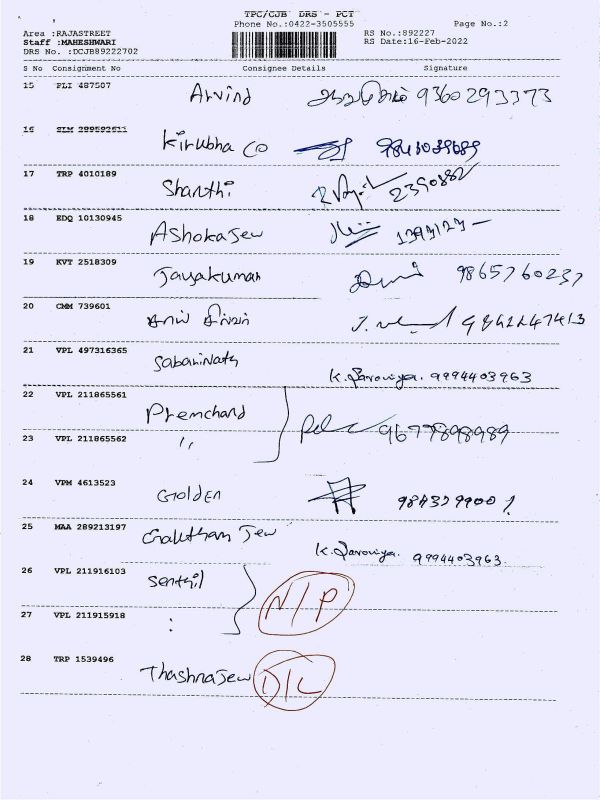 TPC/CJB DRS - PCT
Phone No.:0422-3505555 Page No.:2
Area :RAJASTREET RS No.:892227
Staff :MAHESHWARI RS Date:16-Feb-2022
DRS No. :DCJB89222702
S No Consignment No Consignee Details Signature
15 PLI 487507 Arvind 9360293373
16 SLM 289592611 Kirubha Co
17 TRP 4010189 Shanthi 2390882
18 EDQ 10130945 Ashoka Jew
19 KVT 2518309 Jayakumar 9865760237
20 CMM 739601
21 VPL 497316365 Sabarinath K. Saroniya. 9994403963
22 VPL 211865561 Premchand
23 VPL 211865562 〃 9677898989
24 VPM 4613523 Golden
25 MAA 289213197 Gautham Jew K. Saroniya. 9994403963.
26 VPL 211916103 Senthil N/P
27 VPL 211915918 :
28 TRP 1539496 Thashna Jew D/L